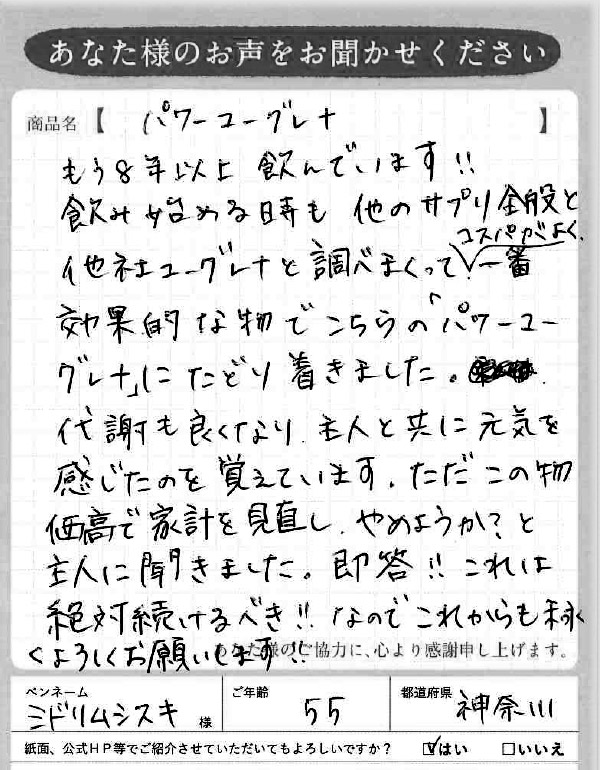 あなた様のお声をお聞かせください
商品名【 パワーユーグレナ 】
もう8年以上 飲んでいます!!
飲み始める時も 他のサプリ全般と
他社ユーグレナと調べまくって、コスパがよく、一番
効果的な物でこちらの「パワーユー
グレナ」にたどり着きました。
代謝も良くなり、主人と共に元気を
感じたのを覚えています。ただこの物
価高で家計を見直し、やめようか?と
主人に聞きました。即答!! これは
絶対続けるべき!! なのでこれからも末永
くよろしくお願いします!!
あなた様のご協力に、心より感謝申し上げます。
ペンネーム ミドリムシスキ 様 ご年齢 55 都道府県 神奈川
紙面、公式HP等でご紹介させていただいてもよろしいですか? ☑はい □いいえ